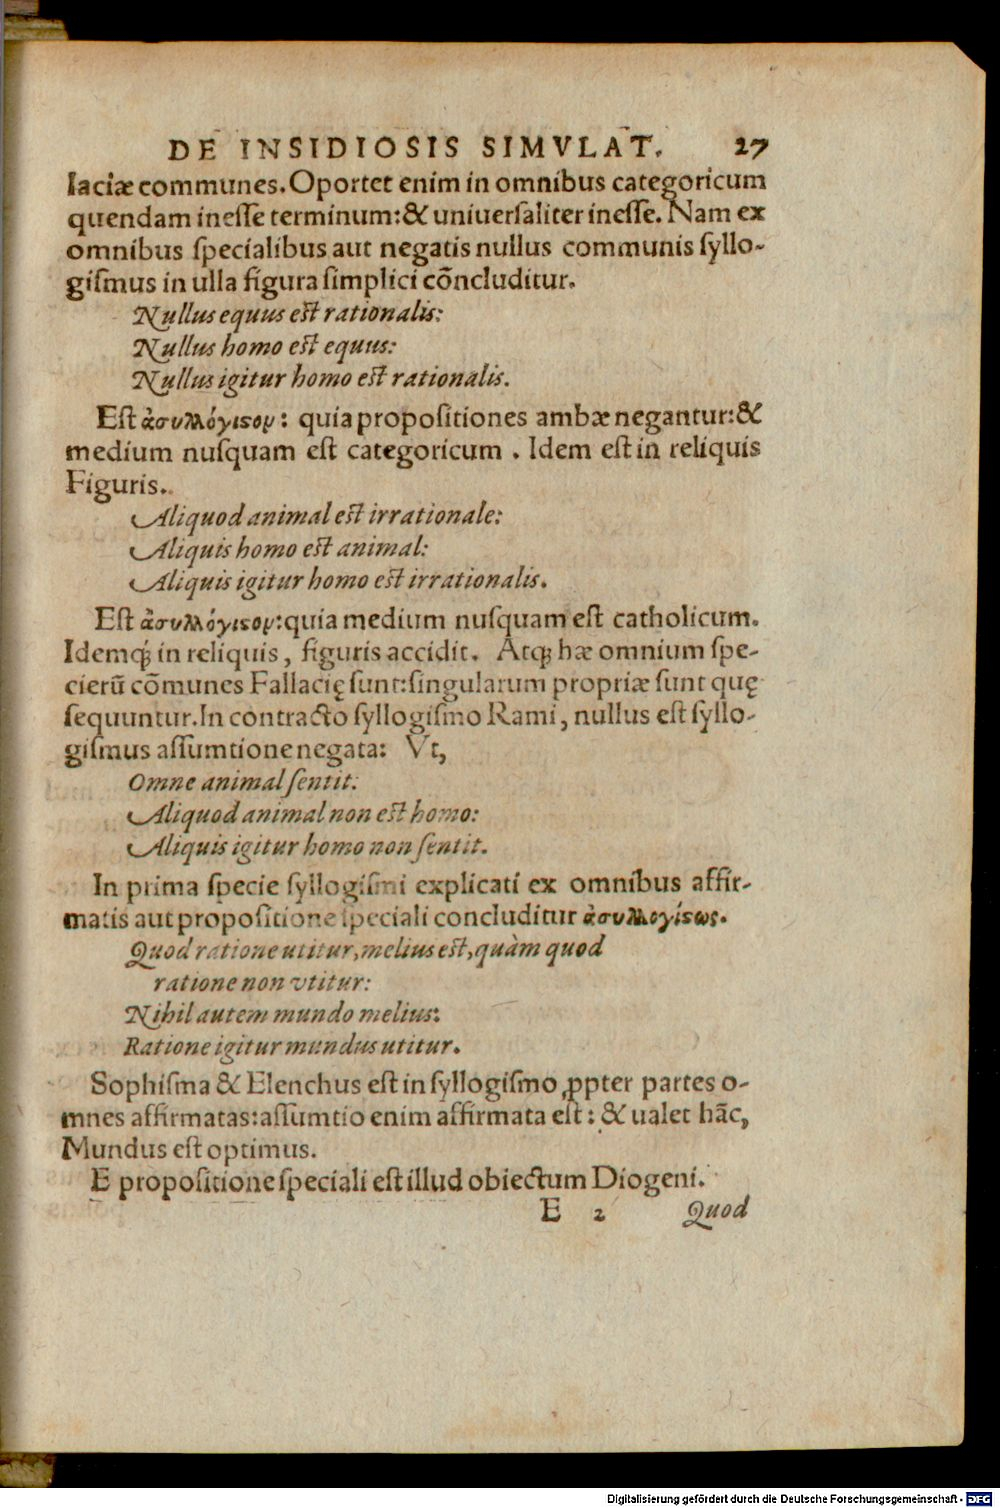 DE INSIDIOSIS SIMVLAT. 27
laciæ communes. Oportet enim in omnibus categoricum
quendam inesse terminum: & uniuersaliter inesse. Nam ex
omnibus specialibus aut negatis nullus communis syllo-
gismus in ulla figura simplici cōncluditur.
Nullus equus est rationalis:
Nullus homo est equus:
Nullus igitur homo est rationalis.
Est ἀσυλλόγισον: quia propositiones ambæ negantur: &
medium nusquam est categoricum. Idem est in reliquis
Figuris.
Aliquod animal est irrationale:
Aliquis homo est animal:
Aliquis igitur homo est irrationalis.
Est ἀσυλλόγισον: quia medium nusquam est catholicum.
Idemq́; in reliquis, figuris accidit. Atq; hæ omnium spe-
cierū cōmunes Fallacię sunt: singularum propriæ sunt quę
sequuntur. In contracto syllogismo Rami, nullus est syllo-
gismus assumtione negata: Vt,
Omne animal sentit:
Aliquod animal non est homo:
Aliquis igitur homo non sentit.
In prima specie syllogismi explicati ex omnibus affir-
matis aut propositione speciali concluditur ἀσυλλογίσως.
Quod ratione utitur, melius est, quàm quod
ratione non vtitur:
Nihil autem mundo melius:
Ratione igitur mundus utitur.
Sophisma & Elenchus est in syllogismo ꝓpter partes o-
mnes affirmatas: assumtio enim affirmata est: & ualet hāc,
Mundus est optimus.
E propositione speciali est illud obiectum Diogeni.
E 2 Quod
Digitalisierung gefördert durch die Deutsche Forschungsgemeinschaft - DFG